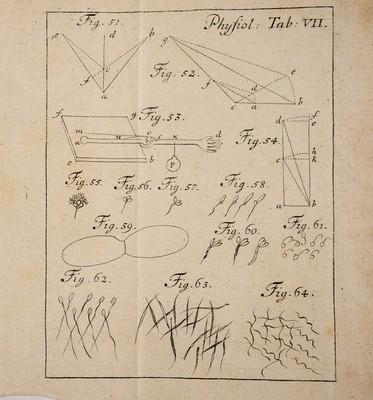 Physiol: Tab: VII.
Fig. 51.
e d b
f c
a
g
Fig. 52.
f d e
c a b
f g Fig. 53.
m
a n o s x d
e b
P
Fig. 54.
d f
e
c h
k
a b
Fig. 55. Fig. 56. Fig. 57. Fig. 58.
Fig. 59. Fig. 60. Fig. 61.
Fig. 62. Fig. 63. Fig. 64.